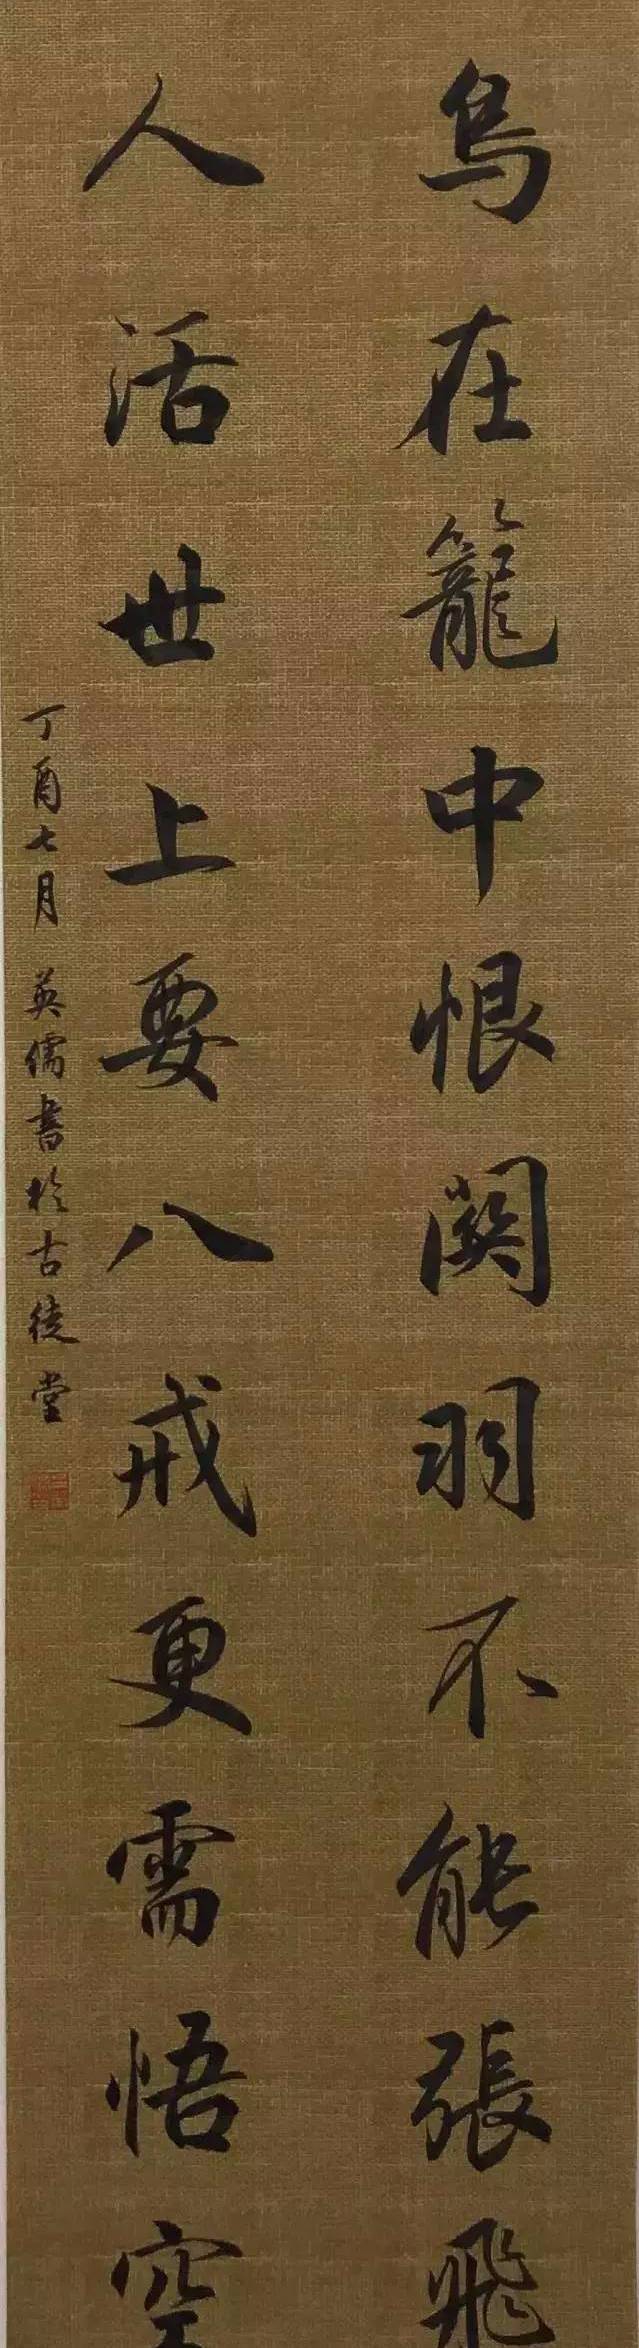 鸟在籠中恨関羽不能張飛
人活世上要八戒更需悟空
丁酉七月 英儒書於古徒堂